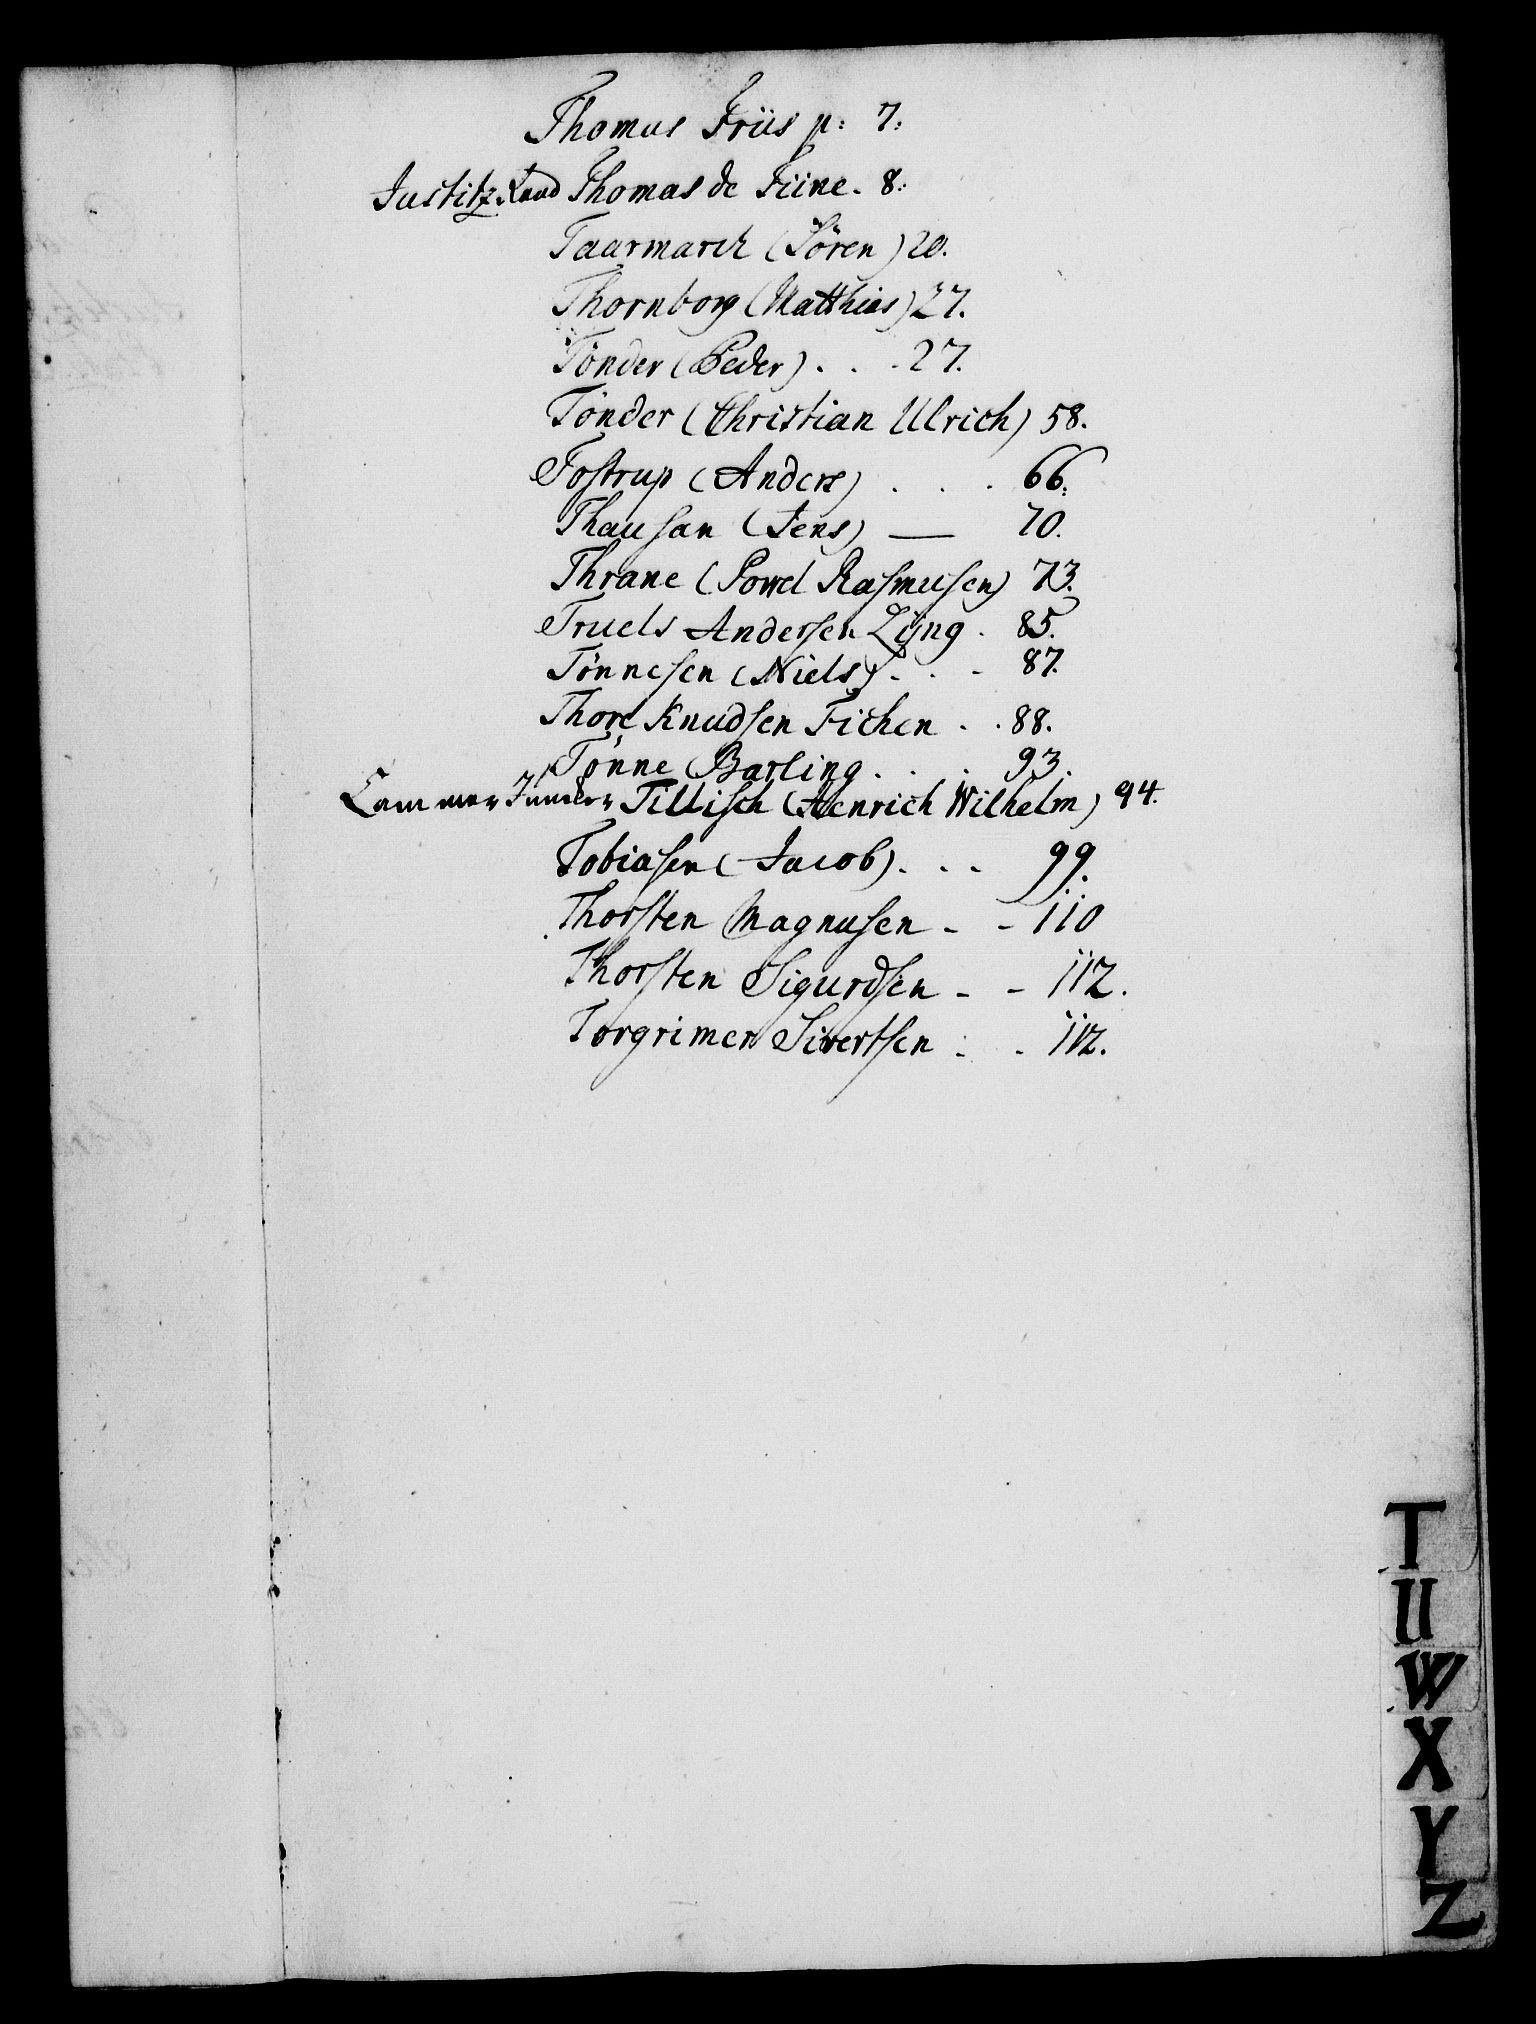 Thomas Friis p: 7:
Justitz Raad Thomas de Fiine. 8:
Taarmarck (Sören) 20.
Thornborg (Matthias) 27.
Tönder (Peder) . . . 27.
Tönder (Christian Ulrich) 58.
Tostrup (Anders) . . . 66:
Thausan (Jens) — 70.
Thrane (Powel Rasmusen) 73.
Truels Andersen Lyng . 85.
Tönnesen (Niels) . . - 87.
Thore Knudsen Fichen . . 88.
Tönne Barling . . . 93.
Cammer Juncker Tillisch (Henrich Wilhelm) 94.
Tobiasen (Jacob) . . - 99.
Thorsten Magnusen - - 110
Thorsten Sigurdsen - - 112.
Torgrimer Sivertsen . . 112.
T
U
W
X
Y
Z